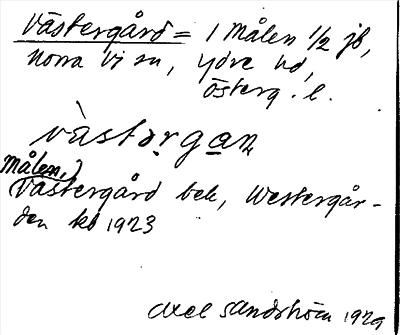 Västergård = 1 Målen 1/2 jb,
Norra Vi sn, Ydre hd,
Österg. l.
vàstərgan
Målen,)
Västergård bek, Westergår-
den kb 1923
Axel Sandström 1929